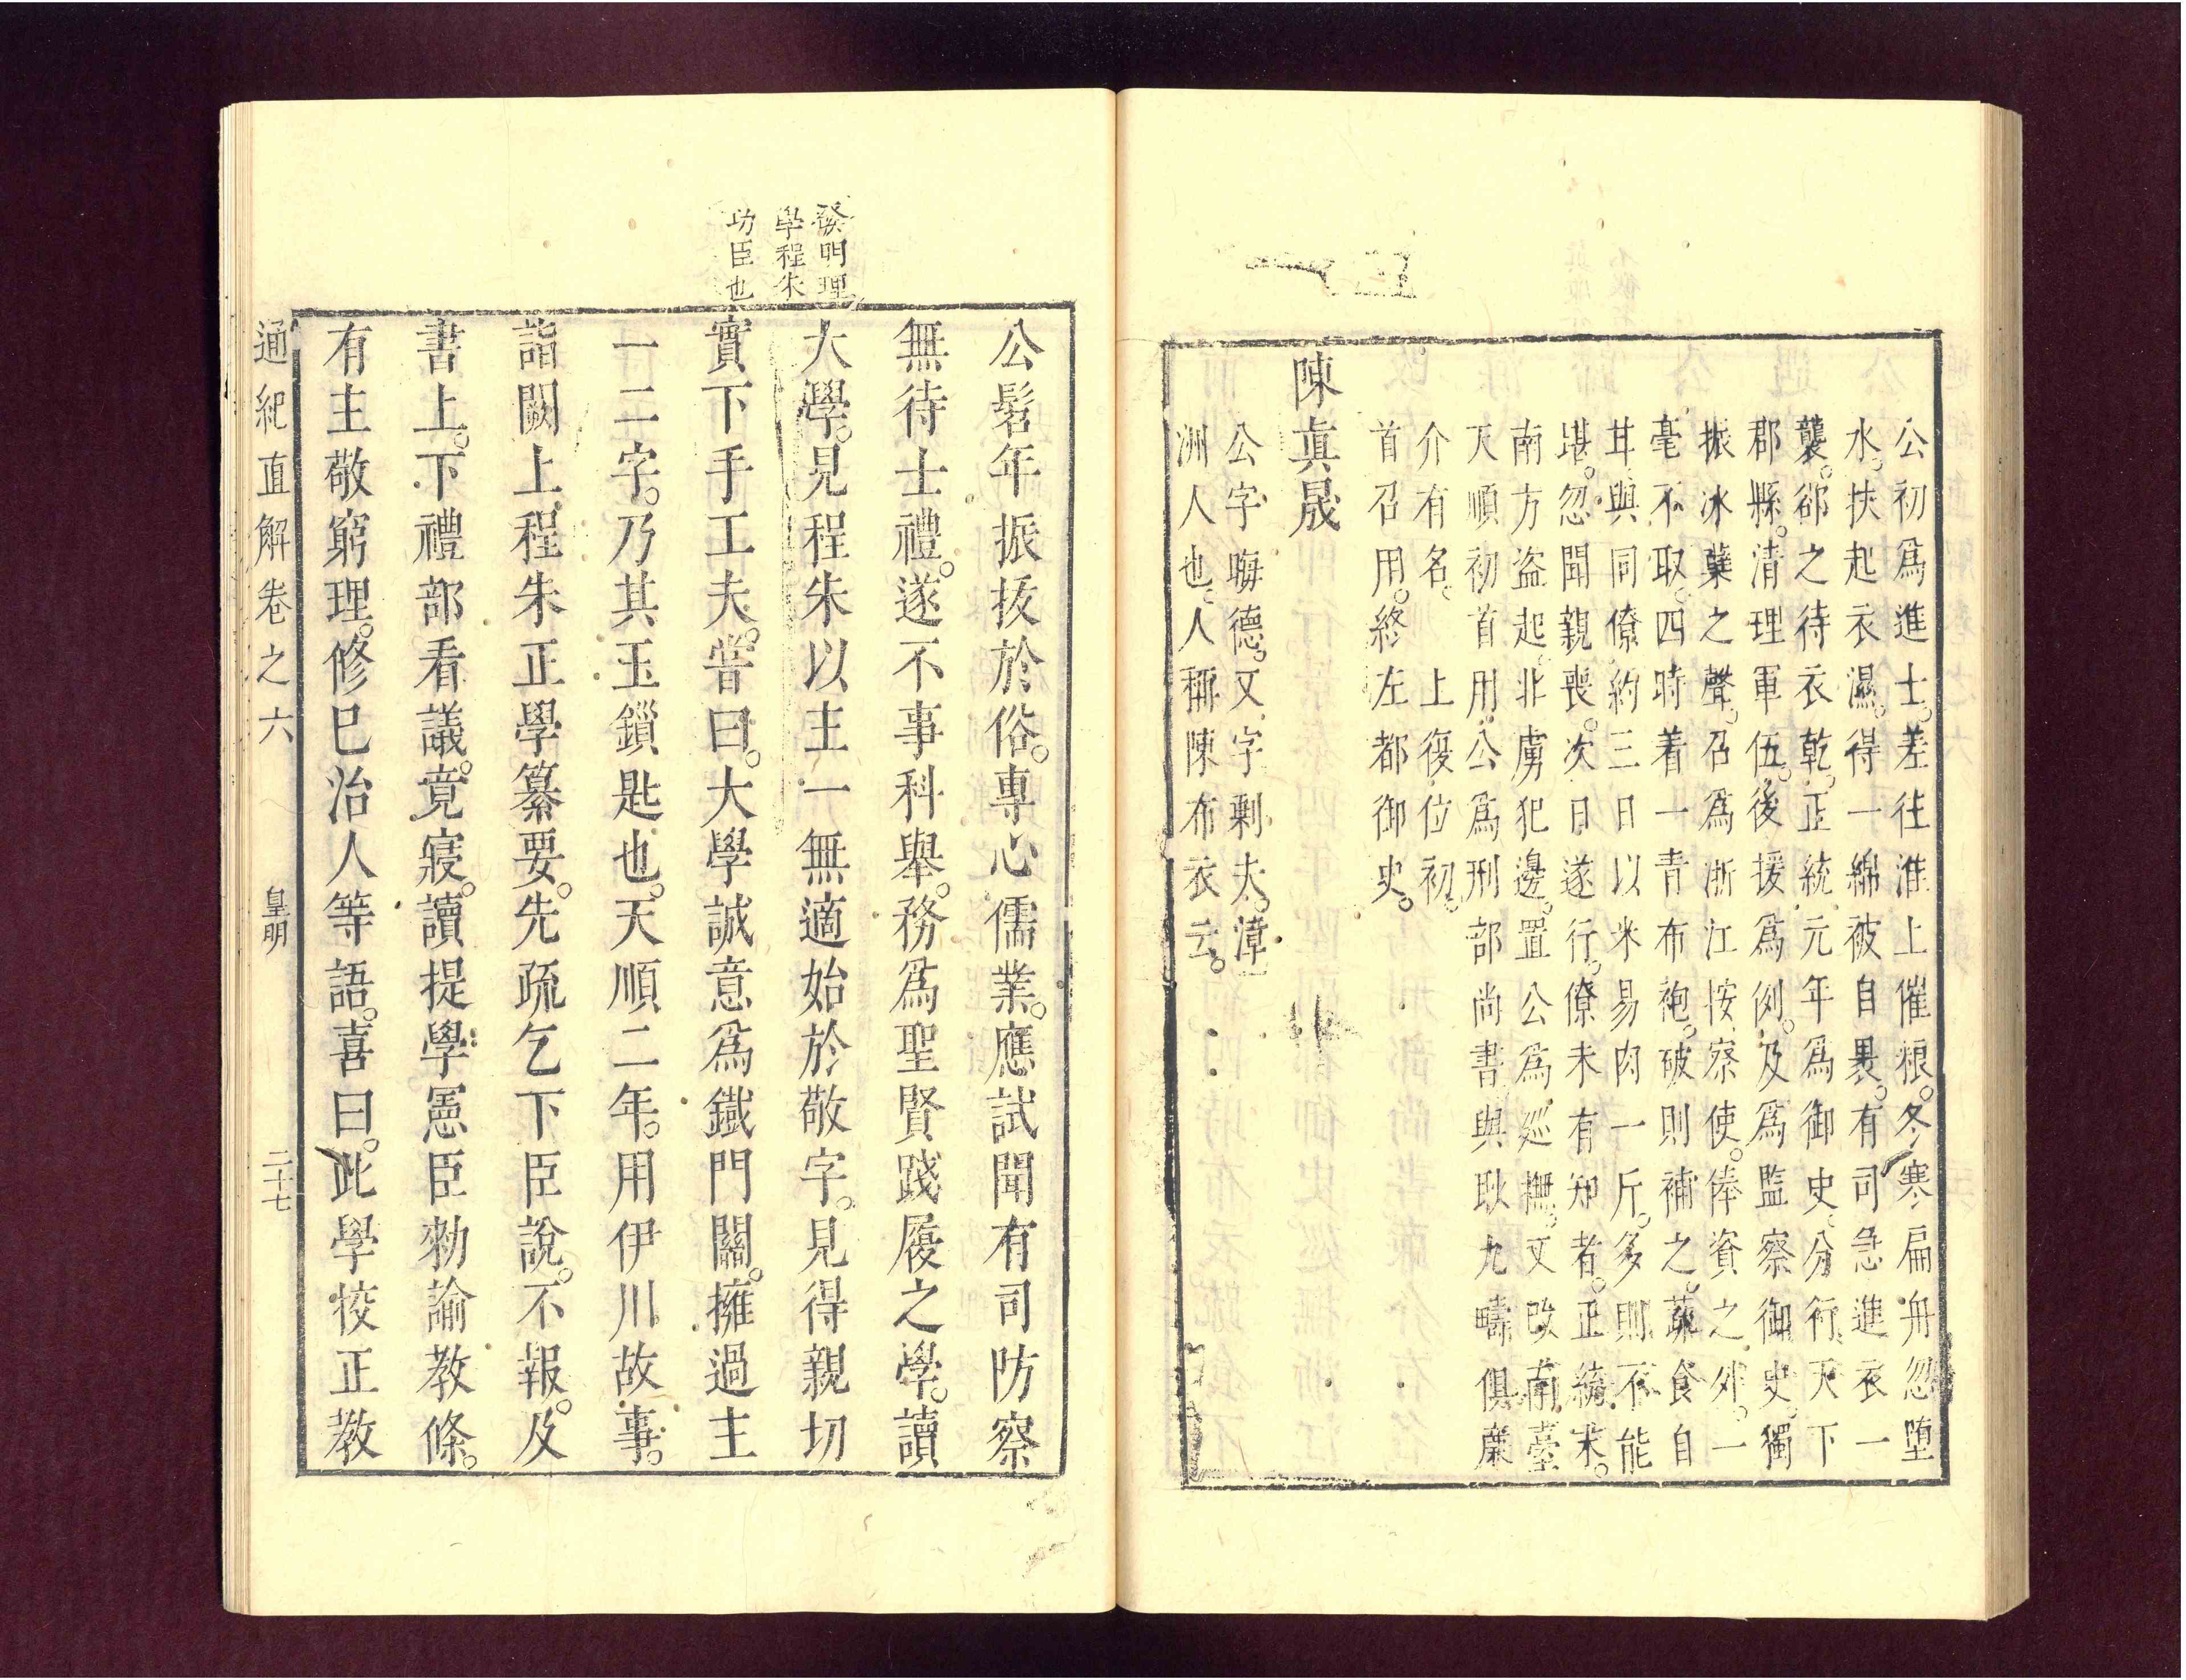 公初爲進士。差往淮上催粮。冬寒扁舟忽堕
水。扶起衣濕。得一綿被自裹。有司急進衣一
襲。郤之待衣乾。正統元年爲御史。分行天下
郡縣。清理軍伍。後援爲例。及爲監察御史。獨
振冰蘗之聲。召爲浙江按察使。俸資之外。一
毫不取。四時着一青布袍。破則補之。蔬食自
甘。與同僚約三日以米易肉一斤。多則不能
堪。忽聞親喪。次日遂行。僚未有知者。正統末。
南方盗起。北虜犯邊。置公爲廵撫。又改南臺
天順初首用。公爲刑部尚書與耿九疇俱廉
介有名。　上復位初。
首召用。終左都御史。
陳眞晟
公字晦德。又字剩夫。漳
洲人也。人稱陳布衣云。
公髫年振拔於俗。專心儒業。應試聞有司防察
無待士禮。遂不事科舉。務爲聖賢踐履之學。讀
大學。見程朱以主一無適始於敬字。見得親切
實下手工夫。甞曰。大學誠意爲鐵門關。擁過主
一二字。乃其玉鎻匙也。天順二年。用伊川故事。
詣闕上程朱正學纂要。先疏乞下臣說。不報。及
書上。下禮部看議。竟寢。讀提學憲臣勑諭教條。
有主敬窮理。修巳治人等語。喜曰。此學校正教
發明理
學程朱
功臣也
通紀直解卷之六　皇明　二十七